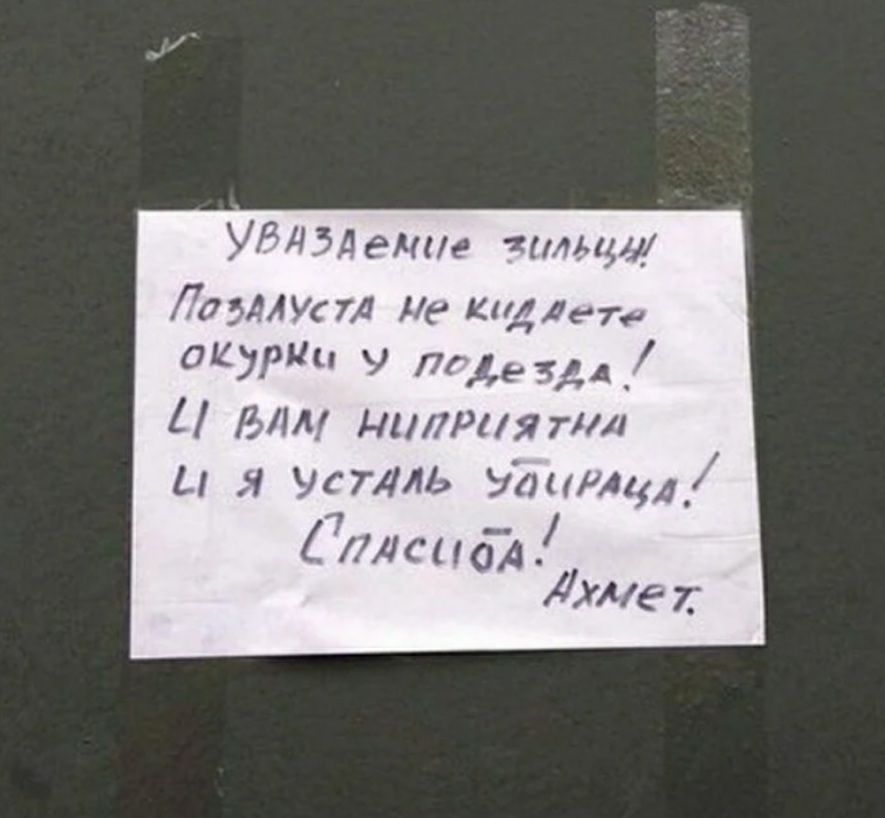 Увазаемие зильцы!
Позалуста не кидаете
окурки у подезда!
И вам ниприятна
и я усталь убираца!
Спасиба!
Ахмет.